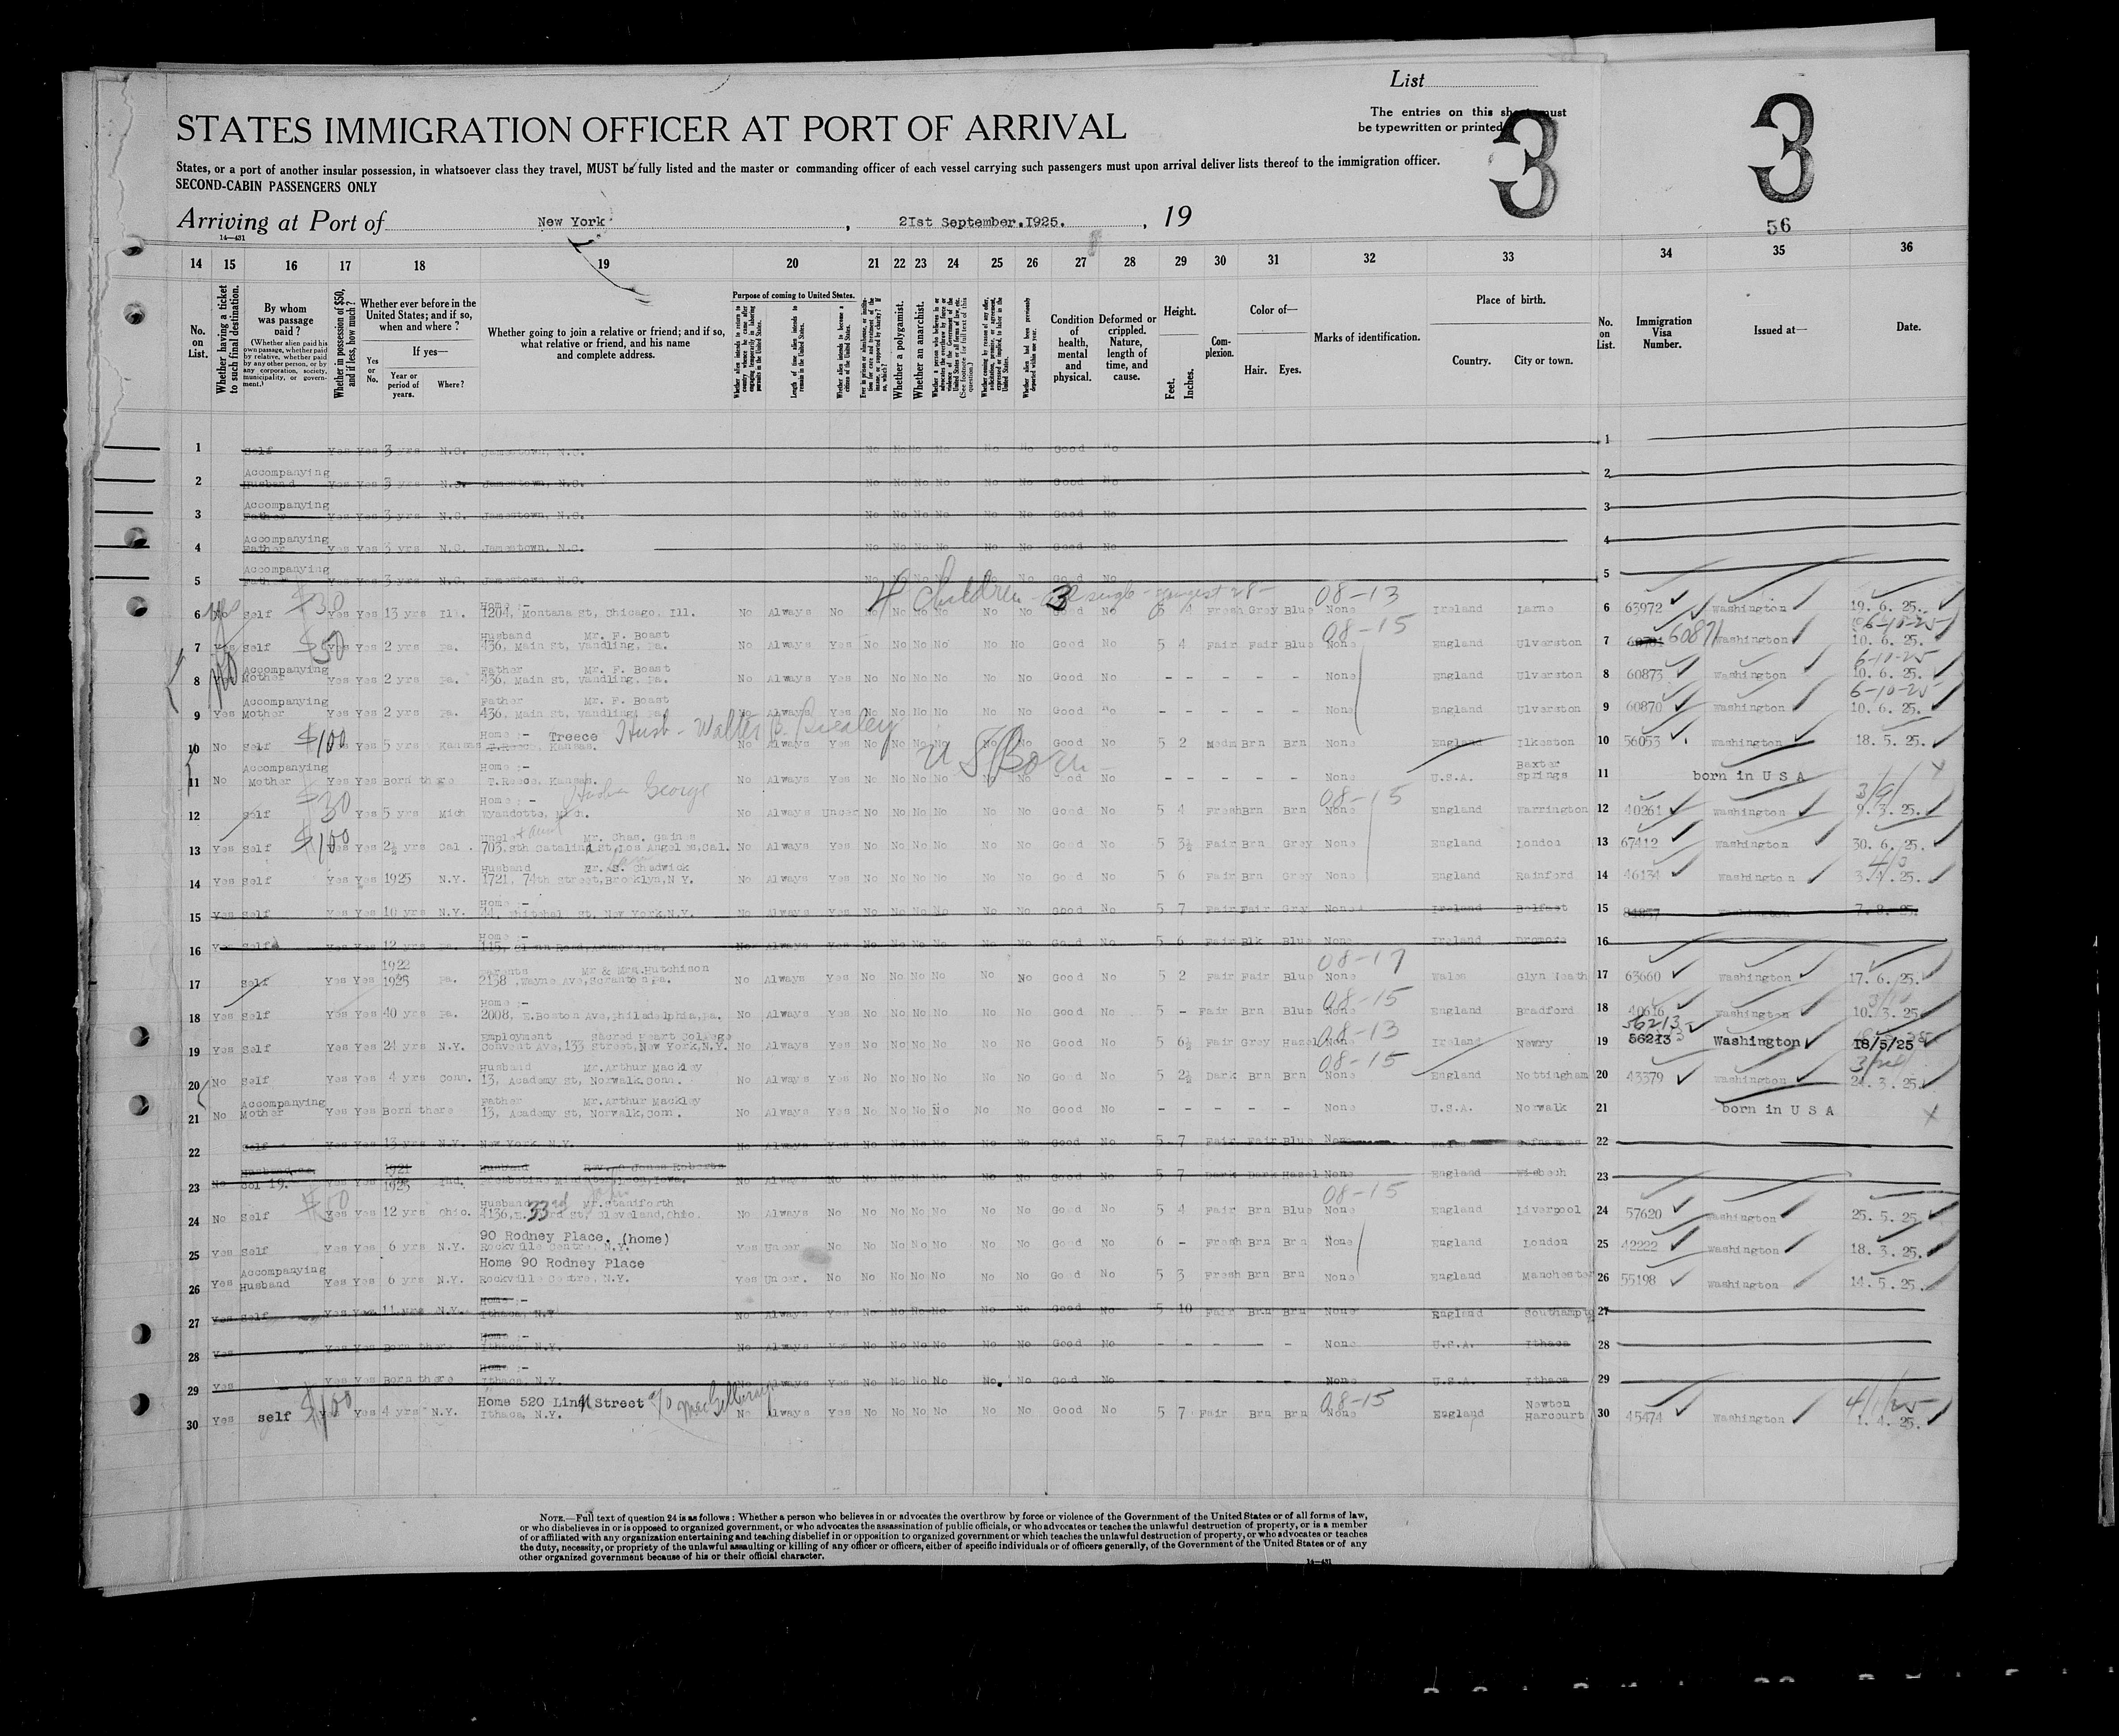 List
The entries on this sheet must
be typewritten or printed
3
3
STATES IMMIGRATION OFFICER AT PORT OF ARRIVAL
States, or a port of another insular possession, in whatsoever class they travel, MUST be fully listed and the master or commanding officer of each vessel carrying such passengers must upon arrival deliver lists thereof to the immigration officer.
SECOND-CABIN PASSENGERS ONLY
Arriving at Port of New York , 21st September.1925. , 19
56
14—431
14 15 16 17 18 19 20 21 22 23 24 25 26 27 28 29 30 31 32 33 34 35 36
No. on List.
Whether having a ticket to such final destination.
By whom was passage paid?
(Whether alien paid his own passage, whether paid by relative, whether paid by any other person, or by any corporation, society, municipality, or government.)
Whether in possession of $50, and if less, how much?
Whether ever before in the United States; and if so, when and where?
Yes or No.
If yes—
Year or period of years.
Where?
Whether going to join a relative or friend; and if so, what relative or friend, and his name and complete address.
Purpose of coming to United States.
Length of time alien intends to remain in the United States.
Whether alien intends to become a citizen of the United States.
Whether a polygamist.
Whether an anarchist.
Condition of health, mental and physical.
Deformed or crippled. Nature, length of time, and cause.
Height.
Feet. Inches.
Complexion.
Color of—
Hair. Eyes.
Marks of identification.
Place of birth.
Country. City or town.
No. on List.
Immigration Visa Number.
Issued at—
Date.
1 Self Yes Yes 3 yrs N.C. Jamestown, N.C. No No No No No No Good No 1
Accompanying
2 Husband Yes Yes 3 yrs N.C. Jamestown, N.C. No No No No No No Good No 2
Accompanying
3 Father Yes Yes 3 yrs N.C. Jamestown, N.C. No No No No No No Good No 3
Accompanying
4 Father Yes Yes 3 yrs N.C. Jamestown, N.C. No No No No No No Good No 4
Accompanying
5 Father Yes Yes 3 yrs N.C. Jamestown, N.C. No No No No No No Good No 5
4 children single - youngest 28 - 08-13
Home :-
6 Self $30 Yes Yes 13 yrs Ill. 1204, Montana St, Chicago, Ill. No Always No No No No No No No Good No Fresh Grey Blue None Ireland Larne 6 63972 Washington 19. 6. 25.
Husband Mr. F. Boast 08-15 6-10-25
7 Yes Self $50 Yes Yes 2 yrs Pa. 436, Main St, Vandling, Pa. No Always Yes No No No No No No Good No 5 4 Fair Fair Blue None England Ulverston 7 60871 Washington 10. 6. 25.
Accompanying Father Mr. F. Boast 6-10-25
8 Yes Mother Yes Yes 2 yrs Pa. 436, Main St, Vandling, Pa. No Always Yes No No No No No No Good No - - - - - None England Ulverston 8 60873 Washington 10. 6. 25.
Accompanying Father Mr. F. Boast 6-10-25
9 Yes Mother Yes Yes 2 yrs Pa. 436, Main St, Vandling, Pa. No Always Yes No No No No No No Good No - - - - - None England Ulverston 9 60870 Washington 10. 6. 25.
Home :- Treece Husb - Walter
10 No Self $100 Yes Yes 5 yrs Kansas T.Reece, Kansas. No Always Yes No No No No No No Good No 5 2 Medm Brn Brn None England Ilkeston 10 56053 Washington 18. 5. 25.
U S Born
Accompanying Home :- Baxter
11 No Mother Yes Yes Born there T.Reece, Kansas. No Always Yes No No No No No No Good No - - - - - None U.S.A. Springs 11 born in U S A
Home :- George 08-15 3/9/
12 Self $30 Yes 5 yrs Mich Wyandotte, Mich. No Always Uncer No No No No No No Good No 5 4 Fresh Brn Brn None England Warrington 12 40261 Washington 9. 3. 25.
Uncle & aunt Mr. Chas. Gaines
13 Yes Self $100 Yes Yes 2½ yrs Cal. 703, Sth Catalina St, Los Angeles, Cal. No Always Yes No No No No No No Good No 5 3½ Fair Brn Grey None England London 13 67412 Washington 30. 6. 25.
Husband Mr. S. Chadwick
14 Yes Self Yes Yes 1925 N.Y. 1721, 74th Street, Brooklyn, N Y. No Always Yes No No No No No No Good No 5 6 Fair Brn Grey None England Rainford 14 46134 Washington 3. 4. 25.
Home :-
15 Yes Self Yes Yes 10 yrs N.Y. 44, Whitehal St, New York, N.Y. No Always Yes No No No No No No Good No 5 7 Fair Fair Grey None Ireland Belfast 15 Washington 7. 8. 25.
Home :-
16 Yes Self Yes Yes 12 yrs Pa. No Always Yes No No No No No No Good No 5 6 Fair Blk Blue None Ireland Dromore 16
1922 Parents Mr & Mrs. Hutchison 08-17
17 Self Yes Yes 1925 Pa. 2138, Wayne Ave, Scranton Pa. No Always Yes No No No No No No Good No 5 2 Fair Fair Blue None Wales Glyn Neath 17 63660 Washington 17. 6. 25.
Home :- 08-15
18 Yes Self Yes Yes 40 yrs Pa. 2008, E. Boston Ave, Philadelphia, Pa. No Always Yes No No No No No No Good No 5 - Fair Brn Blue None England Bradford 18 40616 Washington 10. 3. 25.
Employment Sacred Heart College 08-13 56213
19 Yes Self Yes Yes 24 yrs N.Y. Convent Ave, 133 Street, New York, N.Y. No Always Yes No No No No No No Good No 5 6½ Fair Grey Hazel None Ireland Newry 19 56213 Washington 18/5/25
Husband Mr. Arthur Mackley 08-15
20 No Self Yes Yes 4 yrs Conn. 13, Academy St, Norwalk, Conn. No Always Yes No No No No No No Good No 5 2½ Dark Brn Brn None England Nottingham 20 43379 Washington 24. 3. 25.
Accompanying Father Mr. Arthur Mackley
21 No Mother Yes Yes Born there 13, Academy St, Norwalk, Conn. No Always Yes No No No No No No Good No - - - - - None U.S.A. Norwalk 21 born in U S A
22 Self Yes Yes 13 yrs N.Y. New York, N.Y. No Always Yes No No No No No No Good No 5 7 Fair Fair Blue None 22
1921 Husband Rev. Jones Roberts
23 No Col 19. Yes Yes 1925 No Always Yes No No No No No No Good No 5 7 Dark Dark Hazel None England Wisbech 23
Husband Mr. Staniforth 08-15
24 No Self Yes Yes 12 yrs Ohio. 4136, E. 33rd St, Cleveland, Ohio. No Always No No No No No No No Good No 5 4 Fair Brn Blue None England Liverpool 24 57620 Washington 25. 5. 25.
90 Rodney Place. (home)
25 Yes Self Yes Yes 6 yrs N.Y. Rockville Centre, N.Y. Yes Uncer. No No No No No No No Good No 6 - Fresh Brn Brn None England London 25 42222 Washington 18. 3. 25.
Accompanying Home 90 Rodney Place
26 Yes Husband Yes Yes 6 yrs N.Y. Rockville Centre, N.Y. Yes Uncer. No No No No No No No Good No 5 3 Fresh Brn Brn None England Manchester 26 55198 Washington 14. 5. 25.
Home :-
27 Yes Self Yes Yes 11 yrs N.Y. Ithaca, N.Y. No Always Yes No No No No No No Good No 5 10 Fair Brn Brn None England Southampton 27
Home :-
28 Yes Yes Yes Born there Ithaca, N.Y. No Always Yes No No No No No No Good No - - - - - None U.S.A. Ithaca 28
Home :-
29 Yes Yes Yes Born there Ithaca, N.Y. No Always Yes No No No No No No Good No - - - - - None U.S.A. Ithaca 29
Home 520 Linn Street c/o MacGillivray 08-15 Newton 4/1/25
30 Yes self $100 Yes Yes 4 yrs N.Y. Ithaca, N.Y. No Always Yes No No No No No No Good No 5 7 Fair Brn Brn None England Harcourt 30 45474 Washington 1. 4. 25.
NOTE.—Full text of question 24 is as follows: Whether a person who believes in or advocates the overthrow by force or violence of the Government of the United States or of all forms of law,
or who disbelieves in or is opposed to organized government, or who advocates the assassination of public officials, or who advocates or teaches the unlawful destruction of property, or is a member
of or affiliated with any organization entertaining and teaching disbelief in or opposition to organized government or which teaches the unlawful destruction of property, or who advocates or teaches
the duty, necessity, or propriety of the unlawful assaulting or killing of any officer or officers, either of specific individuals or of officers generally, of the Government of the United States or of any
other organized government because of his or their official character.
14—431